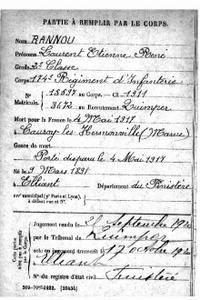 PARTIE À REMPLIR PAR LE CORPS.
Nom RANNOU
Prénoms Laurent Etienne René
Grade 2e Classe
Corps 174e Régiment d'Infanterie
N° 15639 au Corps. — Cl. 1911
Matricule. 3672 au Recrutement Quimper
Mort pour la France le 4 Mai 1917
Cauroy les Hermonville (Marne)
Genre de mort
Porté disparu le 4 Mai 1917
Né le 9 Mars 1891
Elliant Département du Finistère
Arr municipal (p' Paris et Lyon),
à défaut rue et N°.
Jugement rendu le 21 Septembre 1920
par le Tribunal de Quimper
acte ou jugement transcrit le 17 octobre 1920
Elliant
Finistère
N° du registre d'état civil